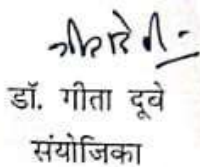 डॉ. गीता दूवे
संयोजिका